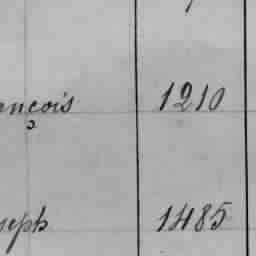 ancois 1210
seph 1485